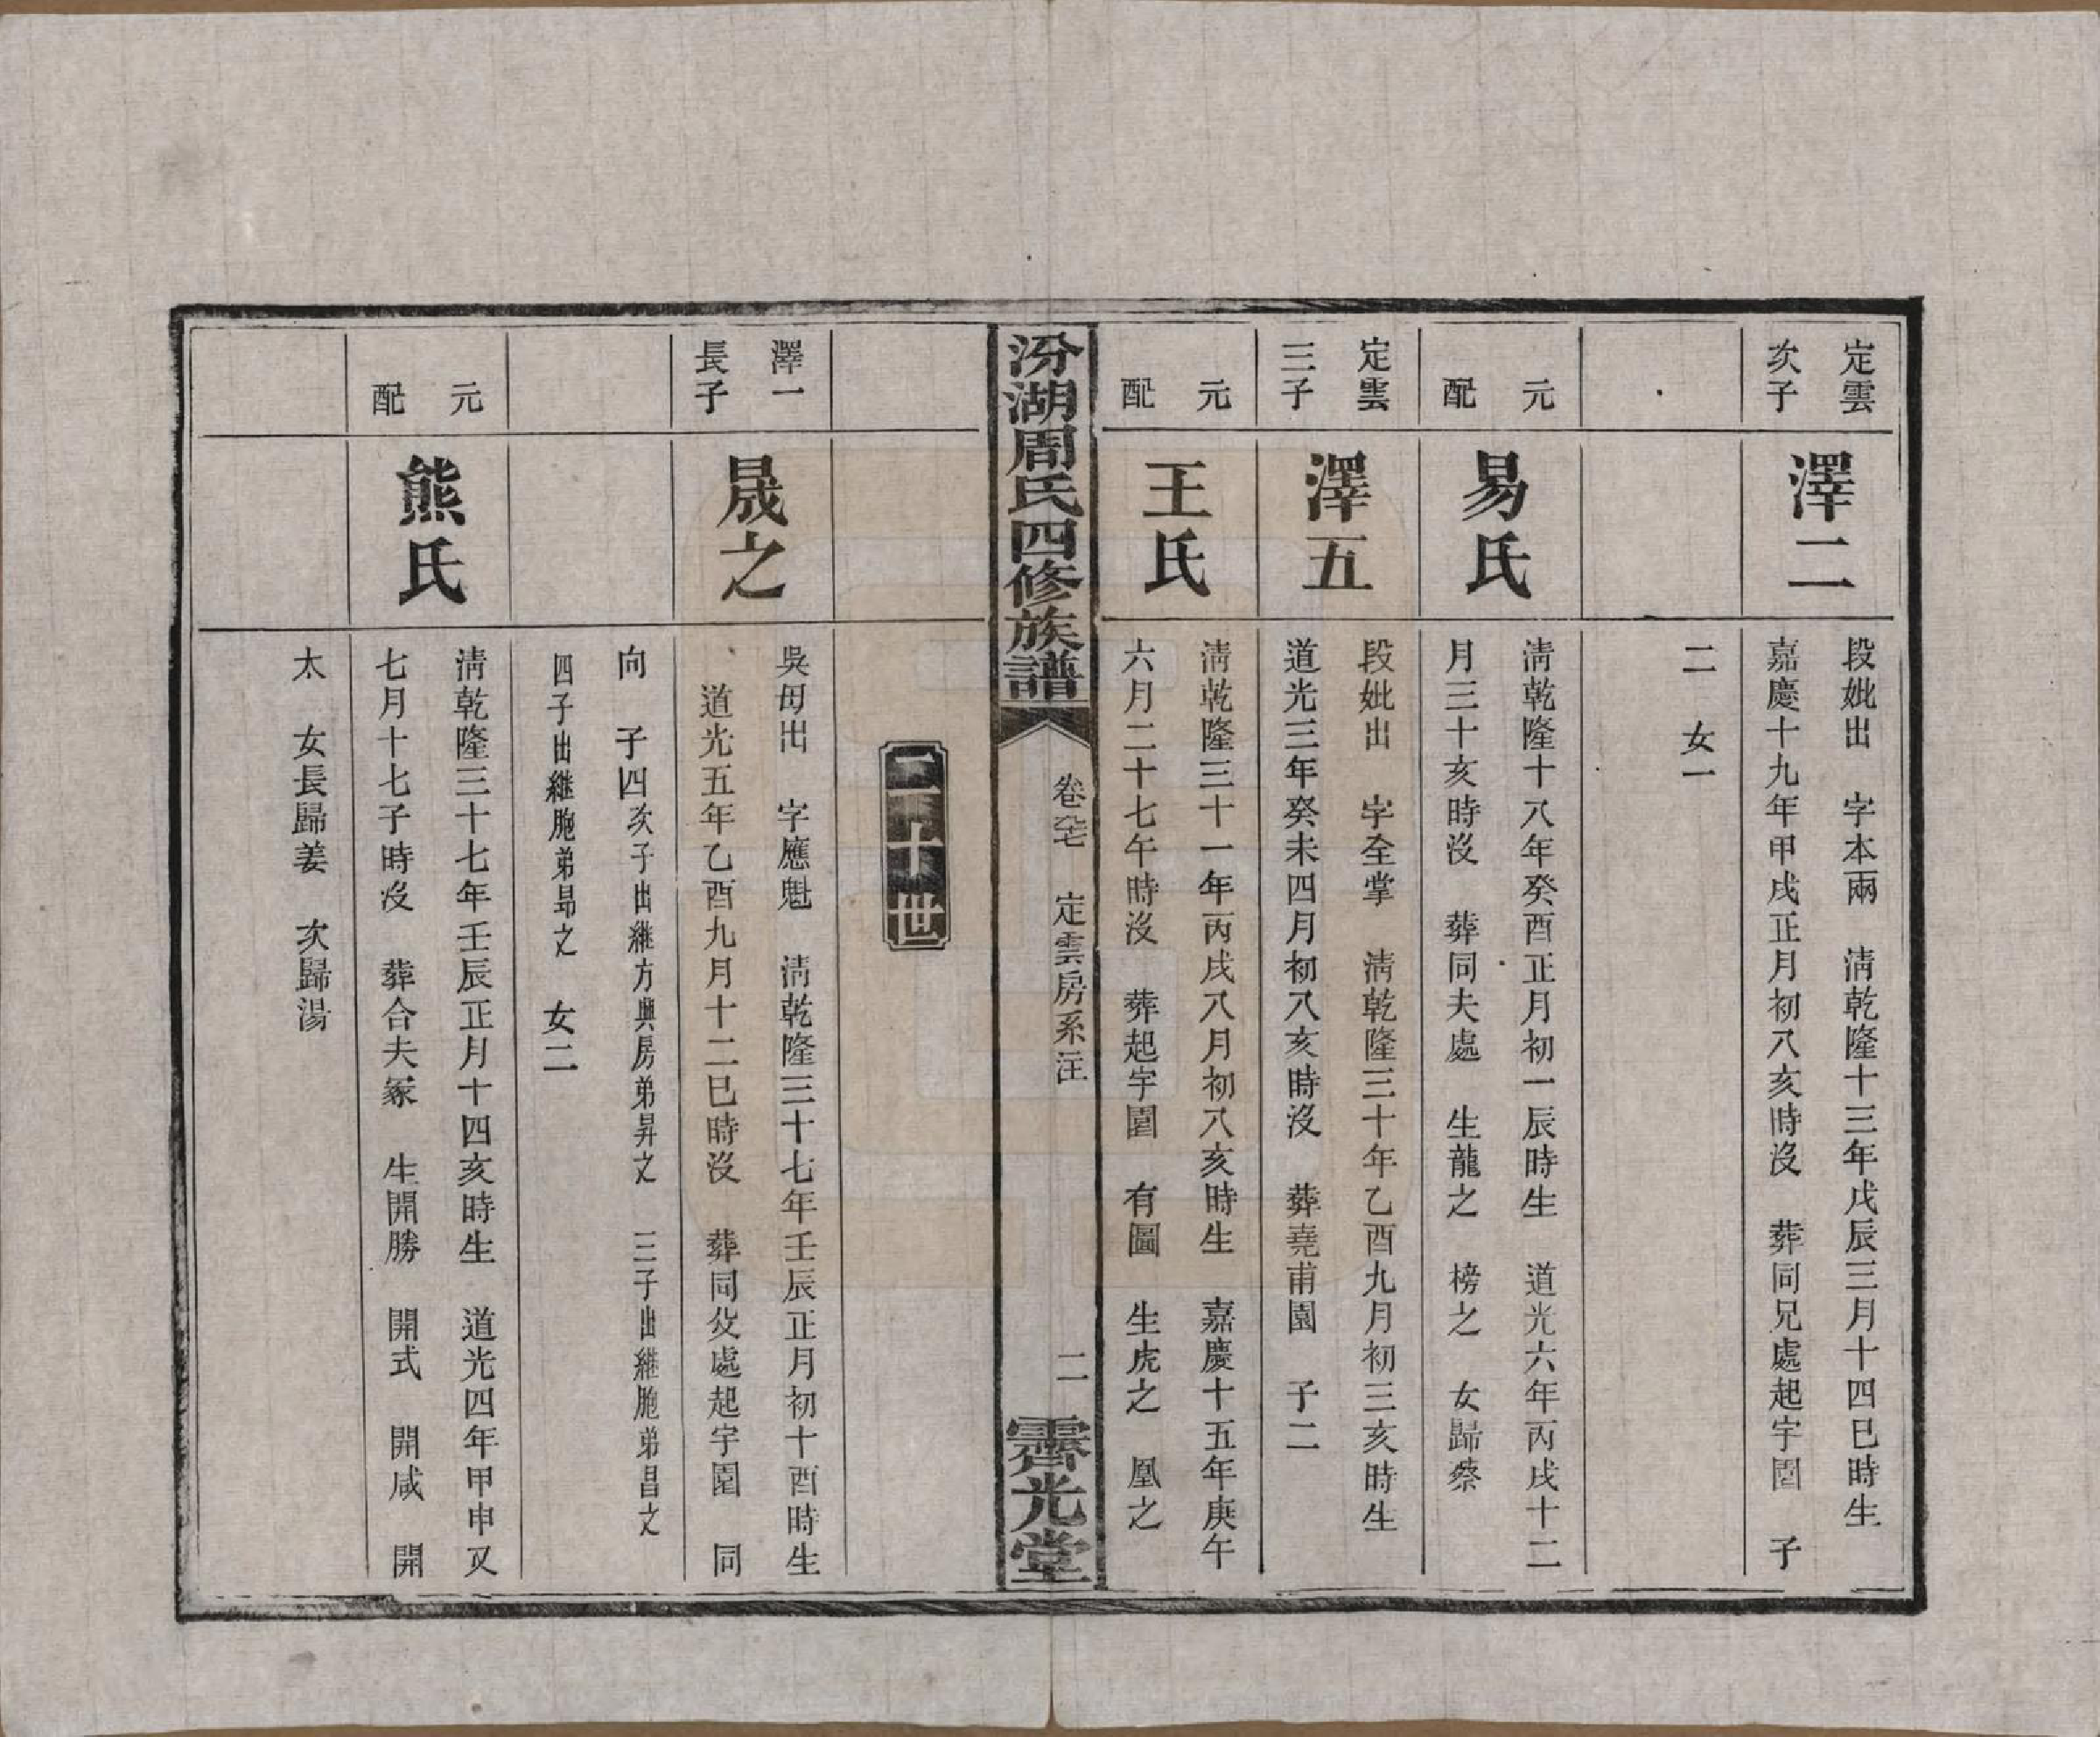 定雲
次子
澤二
段妣出　字本兩　淸乾隆十三年戊辰三月十四巳時生
嘉慶十九年甲戌正月初八亥時沒　葬同兄處起宇園　子
二　女一
元
配
易氏
淸乾隆十八年癸酉正月初一辰時生　道光六年丙戌十二
月三十亥時沒　葬同夫處　生龍之　榜之　女歸蔡
定雲
三子
澤五
段妣出　字全掌　淸乾隆三十年乙酉九月初三亥時生
道光三年癸未四月初八亥時沒　葬堯甫園　子二
元
配
王氏
淸乾隆三十一年丙戌八月初八亥時生　嘉慶十五年庚午
六月二十七午時沒　葬起宇園　有圖　生虎之　凰之
汾湖周氏四修族譜
卷六七　定雲房系注
二
霽光堂
二十世
澤一
長子
晟之
吳母出　字應魁　淸乾隆三十七年壬辰正月初十酉時生
道光五年乙酉九月十二巳時沒　葬同父處起宇園　同
向　子四次子出繼方興房弟昇之　三子出繼胞弟昌之
四子出繼胞弟昻之　女二
元
配
熊氏
淸乾隆三十七年壬辰正月十四亥時生　道光四年甲申又
七月十七子時沒　葬合夫冢　生開勝　開式　開咸　開
太　女長歸姜　次歸湯